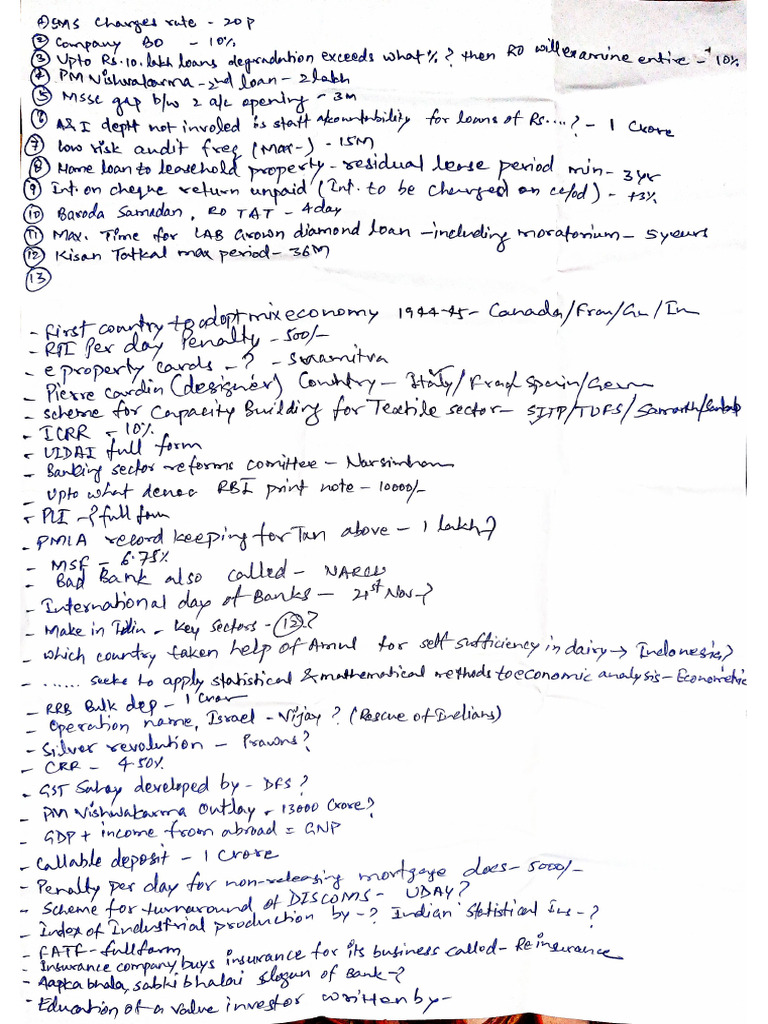 ① SMS Charges rate - 20p
② Company BO - 10%
③ Upto Rs.10 lakh loans degradation exceeds what %? then RO will examine entire - 10%
④ PM Vishwakarma - 2nd loan - 2 lakh
⑤ MSSC gap b/w 2 a/c opening - 3m
⑥ A&I deptt not involed is staff accountability for loans of Rs....? - 1 Crore
⑦ Low risk audit freq (Max-) - 15M
⑧ Home loan to leasehold property - residual lease period min - 3yr
⑨ Int. on cheque return unpaid (Int. to be charged on cc/od) - +3%
⑩ Baroda Samadan, RO TAT - 4day
⑪ Max. Time for LAB Grown diamond loan - including moratorium - 5 years
⑫ Kisan Tatkal max period - 36M
⑬
- First country to adopt mix economy 1944-45 - Canada/Fran/Ge/In
- RTI Per day Penalty - 500/-
- e property cards - ? - Swamitva
- Pierre Cardin (designer) Country - Italy/Fran/Spain/Germ
- scheme for Capacity Building for Textile sector - SITP/TUFS/Samarth/
- ICRR - 10%
- UIDAI full form
- Banking sector reforms comittee - Narsimham
- Upto what denoc RBI print note - 10000/-
- PLI - ? full form
- PMLA record keeping for Tan above - 1 lakh?
- MSF - 6.75%
- Bad Bank also called - NARCL
- International day of Banks - 21st Nov - ?
- Make in Idin - Key sectors - ⑫?
- which country taken help of Amul for self sufficiency in dairy → Indonesia?
- ...... seeks to apply statistical & mathematical methods to economic analysis - Econometric
- RRB Bulk dep - 1 Cror
- Operation name, Israel - Vijay? (Rescue of Indians)
- Silver revolution - Prawns?
- CRR - 4.50%
- GST Sahay developed by - DFS?
- PM Vishwakarma Outlay - 13000 Crore?
- GDP + income from abroad = GNP
- Callable deposit - 1 Crore
- Penalty per day for non-releasing mortgage docs - 5000/-
- Scheme for turnaround of DISCOMS - UDAY?
- Index of Industrial production by - ? Indian Statistical Ins - ?
- FATF - fullform
- Insurance company buys insurance for its business called - Reinsurance
- Aapka bhala, sabki bhalai slogan of Bank - ?
- Education of a value investor written by -